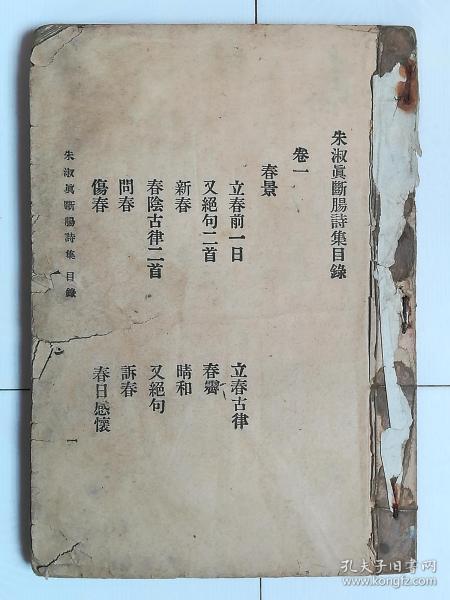 朱淑眞斷腸詩集目錄
卷一
春景
立春前一日
立春古律
又絕句二首
春霽
新春
晴和
春陰古律二首
又絕句
問春
訴春
傷春
春日感懷
朱淑眞斷腸詩集 目錄
一
孔夫子旧书网
www.kongfz.com